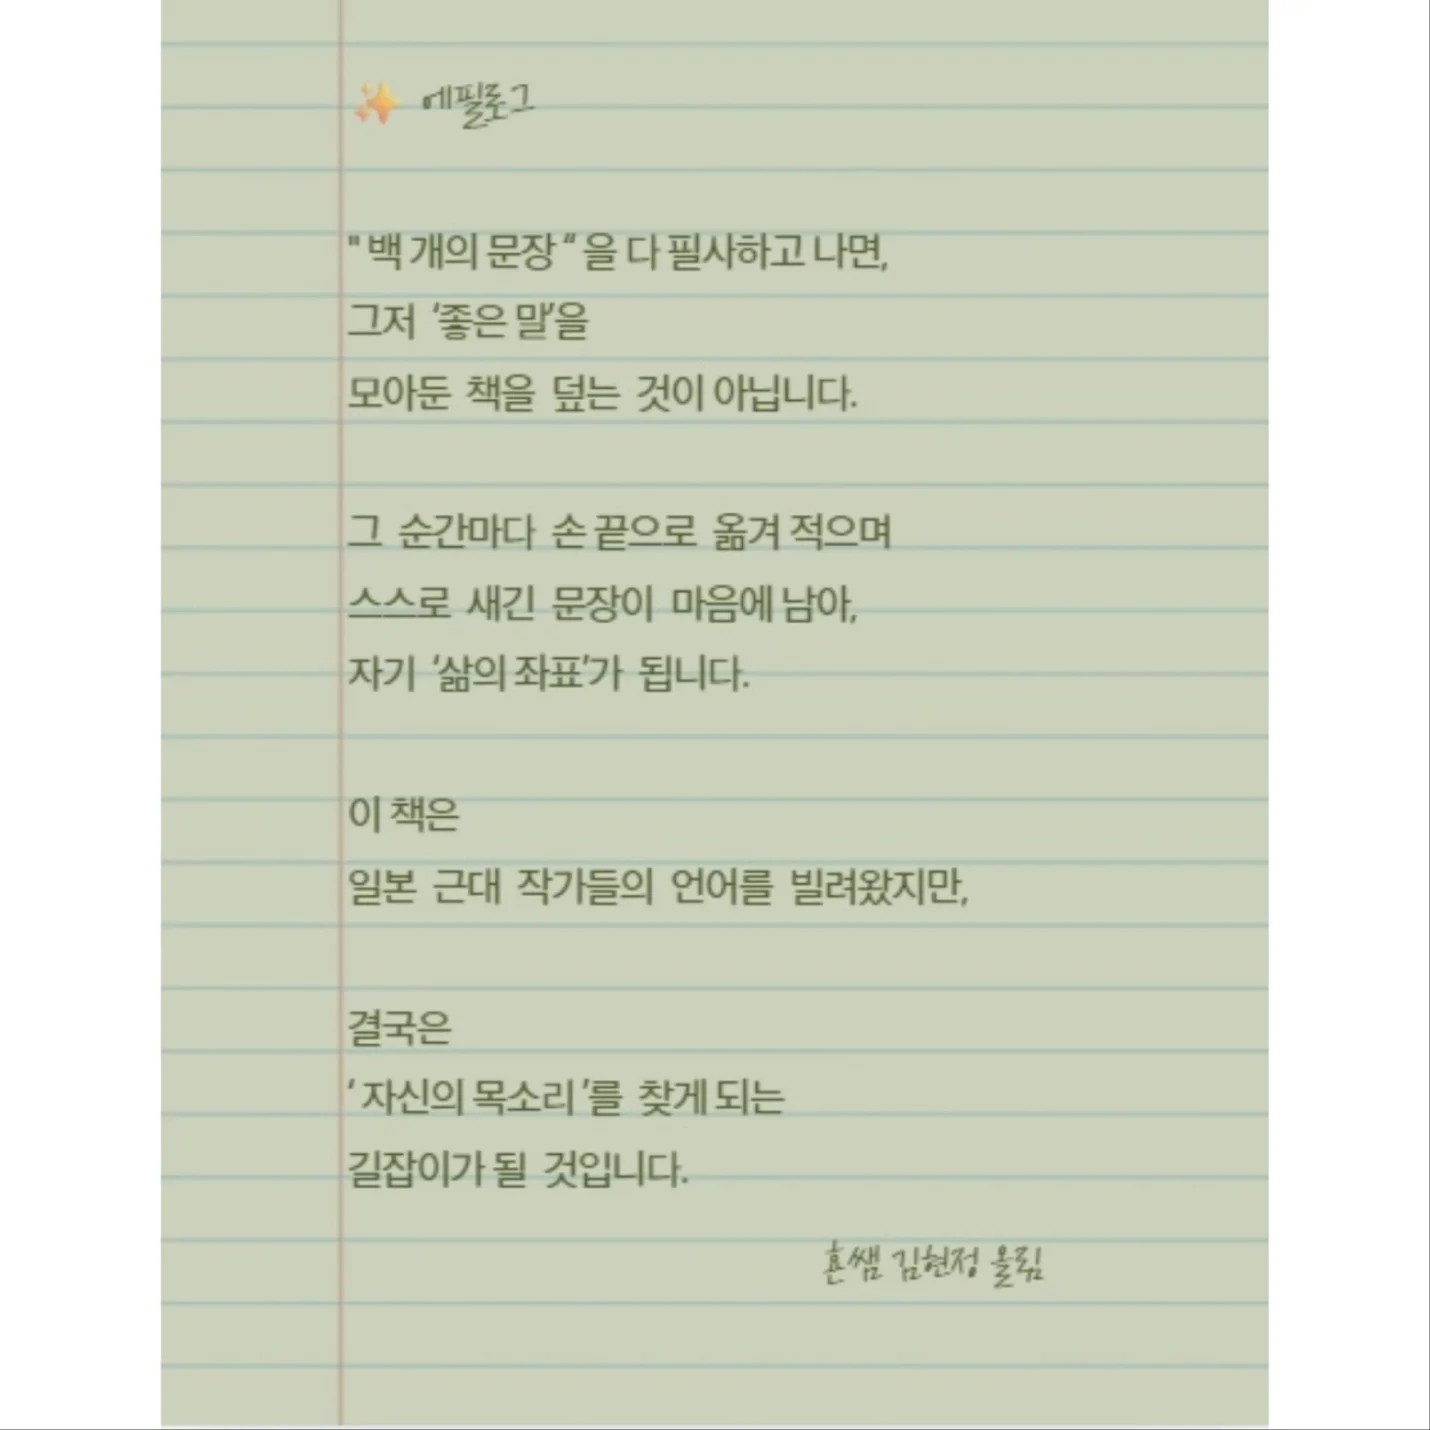 ✨ 에필로그
" 백 개의 문장 “ 을 다 필사하고 나면,
그저 ‘좋은 말’을
모아둔 책을 덮는 것이 아닙니다.
그 순간마다 손 끝으로 옮겨 적으며
스스로 새긴 문장이 마음에 남아,
자기 ‘삶의 좌표’가 됩니다.
이 책은
일본 근대 작가들의 언어를 빌려왔지만,
결국은
‘ 자신의 목소리 ’를 찾게 되는
길잡이가 될 것입니다.
횬쌤 김현정 올림